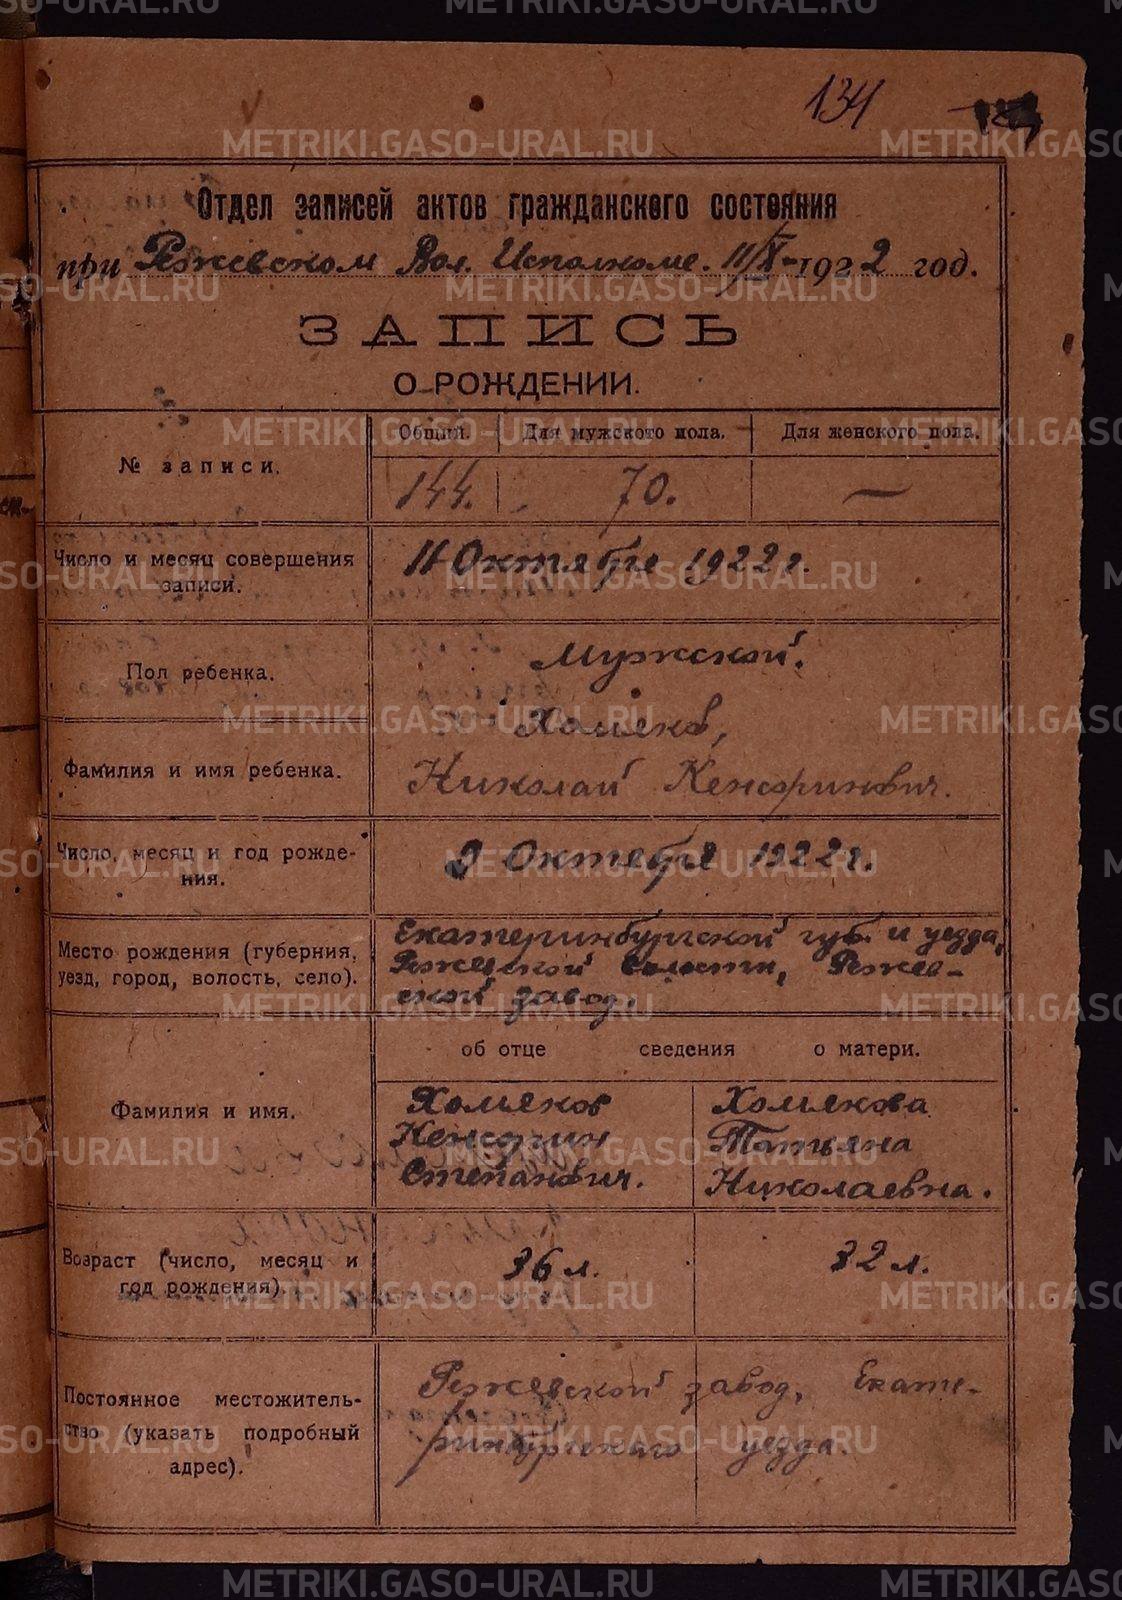 134
Отдел записей актов гражданского состояния
при Режевском Вол. Исполкоме. 11/X-1922 год.
ЗАПИСЬ
О РОЖДЕНИИ.
№ записи.
Общий. Для мужского пола. Для женского пола.
144. 70. —
Число и месяц совершения
записи.
11 Октября 1922 г.
Пол ребенка.
Мужской.
Фамилия и имя ребенка.
Хомяков,
Николай Кенсоринович.
Число, месяц и год рожде-
ния.
9 Октября 1922 г.
Место рождения (губерния,
уезд, город, волость, село).
Екатеринбургской губ. и уезда,
Режевской волости, Режев-
ской завод.
об отце сведения о матери.
Фамилия и имя.
Хомяков
Кенсорин
Степанович.
Хомякова
Татьяна
Николаевна.
Возраст (число, месяц и
год рождения).
36 л. 32 л.
Постоянное местожитель-
ство (указать подробный
адрес).
Режевской завод, Екате-
ринбургского уезда.
METRIKI.GASO-URAL.RU